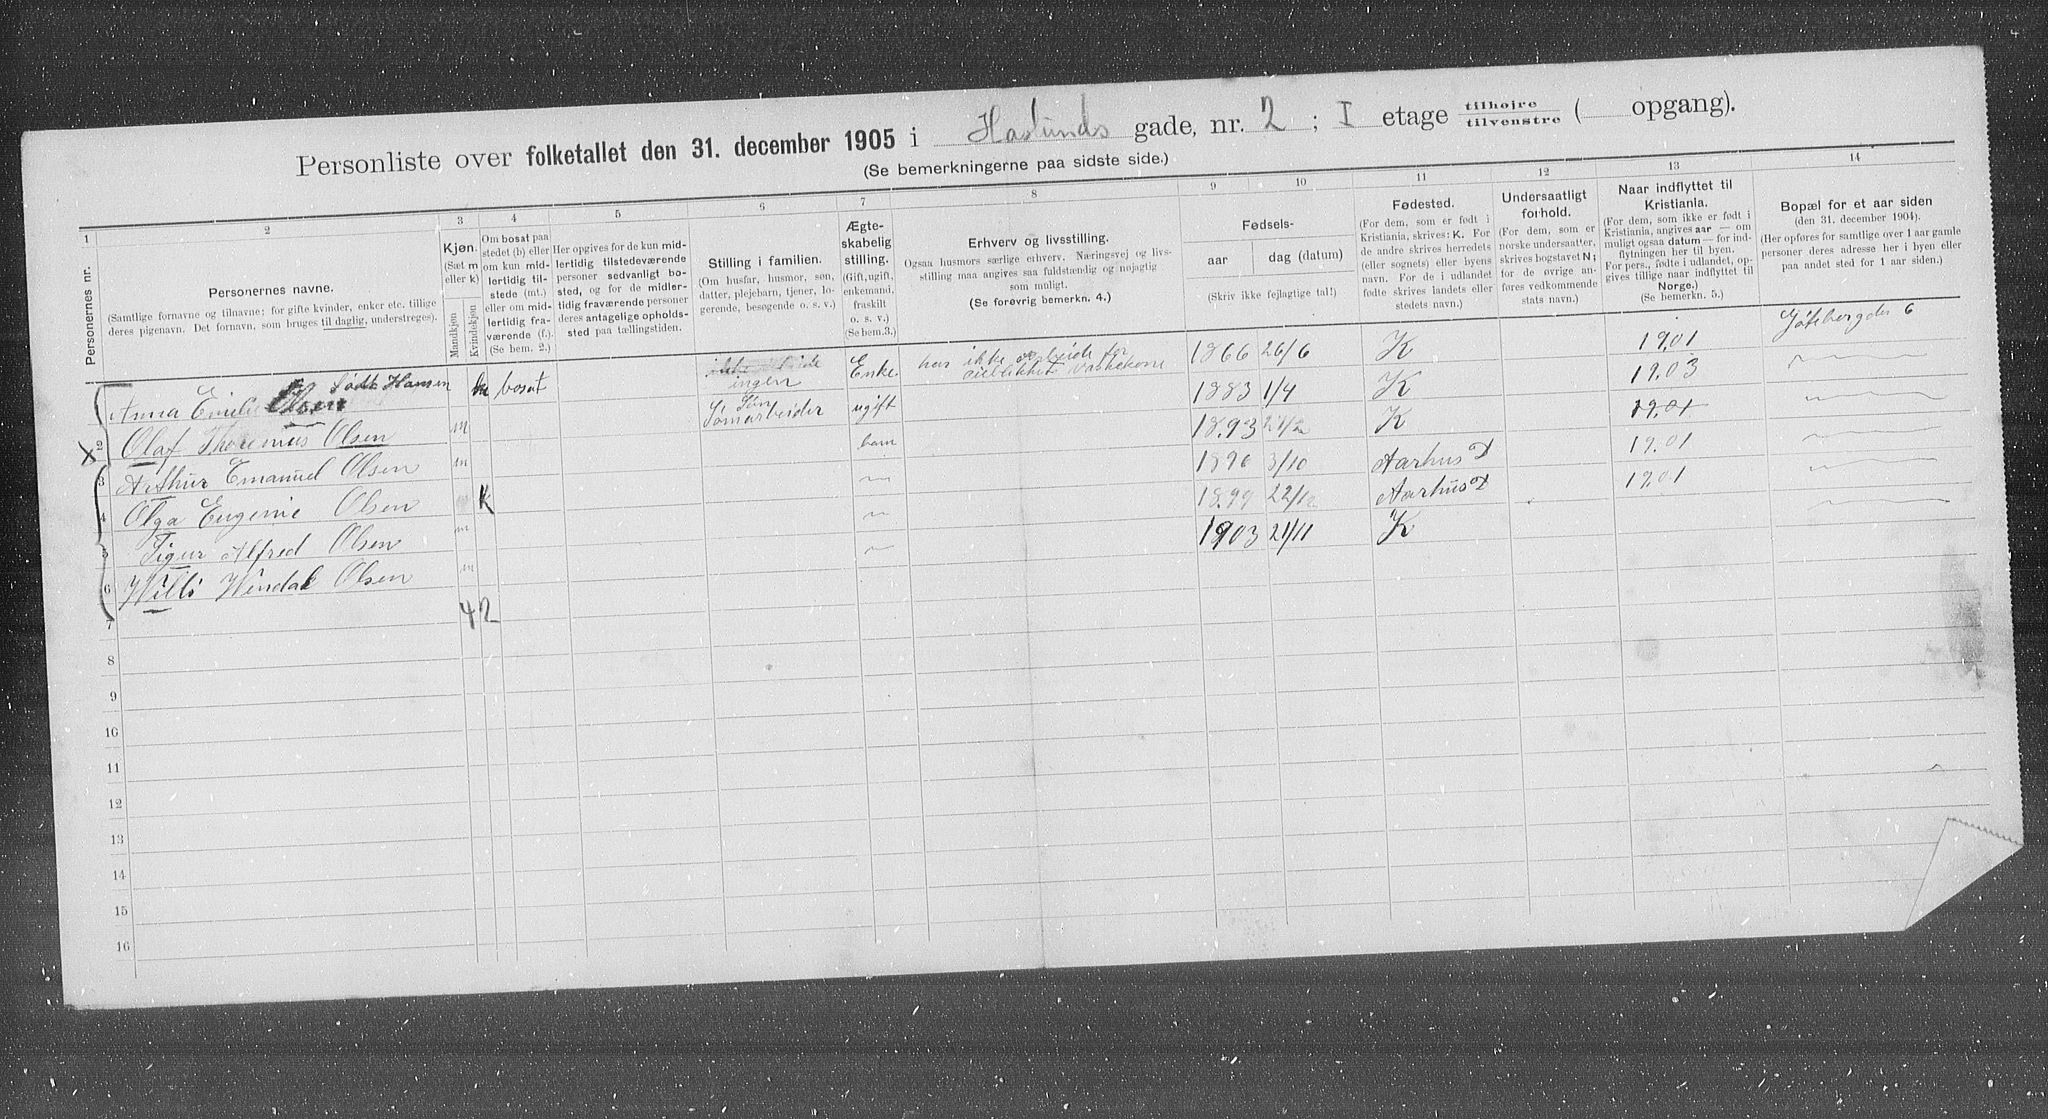 Personliste over folketallet den 31. december 1905 i Haslunds gade, nr. 2 ; I etage tilhøjre tilvenstre ( opgang).
(Se bemerkningerne paa sidste side.)
1 2 3 4 5 6 7 8 9 10 11 12 13 14
Personernes nr.
Personernes navne.
(Samtlige fornavne og tilnavne; for gifte kvinder, enker etc. tillige
deres pigenavn. Det fornavn, som bruges til daglig, understreges).
Kjøn.
(Sæt m
eller k)
Mandkjøn
Kvindekjøn
Om bosat paa
stedet (b) eller
om kun mid-
lertidig til-
stede (mt.)
eller om mid-
lertidig fra-
værende (f.).
(Se bem. 2.)
Her opgives for de kun mid-
lertidig tilstedeværende
personer sedvanligt bo-
sted, og for de midler-
tidig fraværende personer
deres antagelige opholds-
sted paa tællingstiden.
Stilling i familien.
(Om husfar, husmor, søn,
datter, plejebarn, tjener, lo-
gerende, besøgende o. s. v.)
Ægte-
skabelig
stilling.
(Gift, ugift,
enkemand,
fraskilt
o. s. v.)
(Se bem. 3.)
Erhverv og livsstilling.
Ogsaa husmors særlige erhverv. Næringsvej og livs-
stilling maa angives saa fuldstændig og nøjagtig
som muligt.
(Se forøvrig bemerkn. 4.)
Fødsels-
aar dag (datum)
(Skriv ikke fejlagtige tal!)
Fødested.
(For dem, som er født i
Kristiania, skrives: K. For
de andre skrives herredets
(eller sognets) eller byens
navn. For de i udlandet
fødte skrives landets eller
stedets navn.)
Undersaatligt
forhold.
(For dem, som er
norske undersaatter,
skrives bogstavet N;
for de øvrige an-
føres vedkommende
stats navn.)
Naar indflyttet til
Kristiania.
(For dem, som ikke er født i
Kristiania, angives aar — om
muligt ogsaa datum — for ind-
flytningen her til byen.
For pers., fødte i udlandet, op-
gives tillige naar indflyttet til
Norge.)
(Se bemerkn. 5.)
Bopæl for et aar siden
(den 31. december 1904).
(Her opføres for samtlige over 1 aar gamle
personer deres adresse her i byen eller
paa andet sted for 1 aar siden.)
Anna Emilie Olsen født Hansen k bosat ingen Enke har ikke arbeide for øieblikket Vaskekone 1866 26/6 K 1901 Gøteborgdes 6
X 2 Olaf Thoremus Olsen m Søn Sømarbeider ugift 1883 1/4 K 1903
3 Arthur Emanuel Olsen m barn 1893 K 1901
4 Olga Eugenie Olsen k 1896 3/10 Aarhus D 1901
5 Tigur Alfred Olsen m 1899 22/12 Aarhus D 1901
6 Willi Windak Olsen m 1903 21/11 K
7 4 2
8
9
10
11
12
13
14
15
16